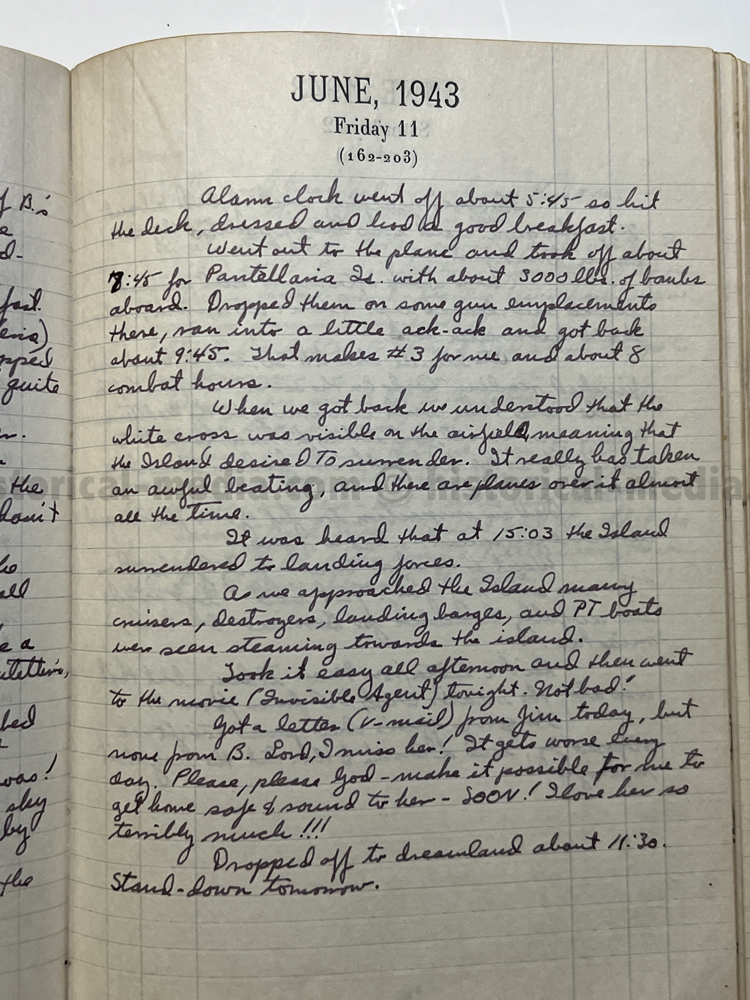 JUNE, 1943
Friday 11
(162-203)
Alarm clock went off about 5:45 so hit
the deck, dressed and had a good breakfast.
Went out to the plane and took off about
7:45 for Pantellaria Is. with about 3000 lbs. of bombs
aboard. Dropped them on some gun emplacements
there, ran into a little ack-ack and got back
about 9:45. That makes #3 for me and about 8
combat hours.
When we got back we understood that the
white cross was visible on the airfield, meaning that
the Island desired To surrender. It really has taken
an awful beating, and there are planes over it almost
all the time.
It was heard that at 15:03 the Island
surrendered to landing forces.
As we approached the Island many
cruisers, destroyers, landing barges, and PT boats
were seen steaming towards the island.
Took it easy all afternoon and then went
to the movie (Invisible Agent) tonight. Not bad!
Got a letter (V-mail) from Jim today, but
none from B. Lord, I miss her! It gets worse every
day. Please, please God - make it possible for me to
get home safe & sound to her - SOON! I love her so
terribly much!!!
Dropped off to dreamland about 11:30.
Stand-down tomorrow.
f B.'s
d-
fast.
pped
quite
the
don't
all
e a
was!
sky
by
the